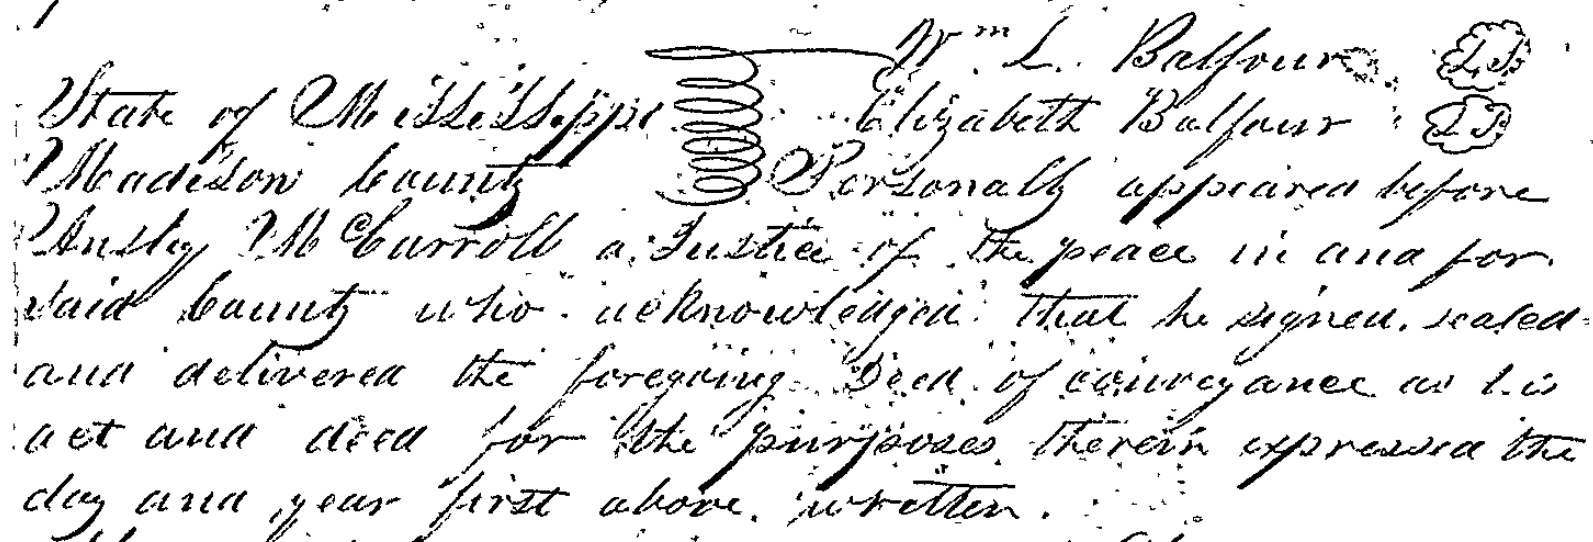 Wm L. Balfour L.S.
State of Mississippi Elizabeth Balfour L.S.
Madison County Personally appeared before
Ansley McCarroll a Justice of the peace in and for
said County who acknowledged that he signed, sealed
and delivered the foregoing Deed of conveyance as his
act and deed for the purposes therein expressed the
day and year first above written.